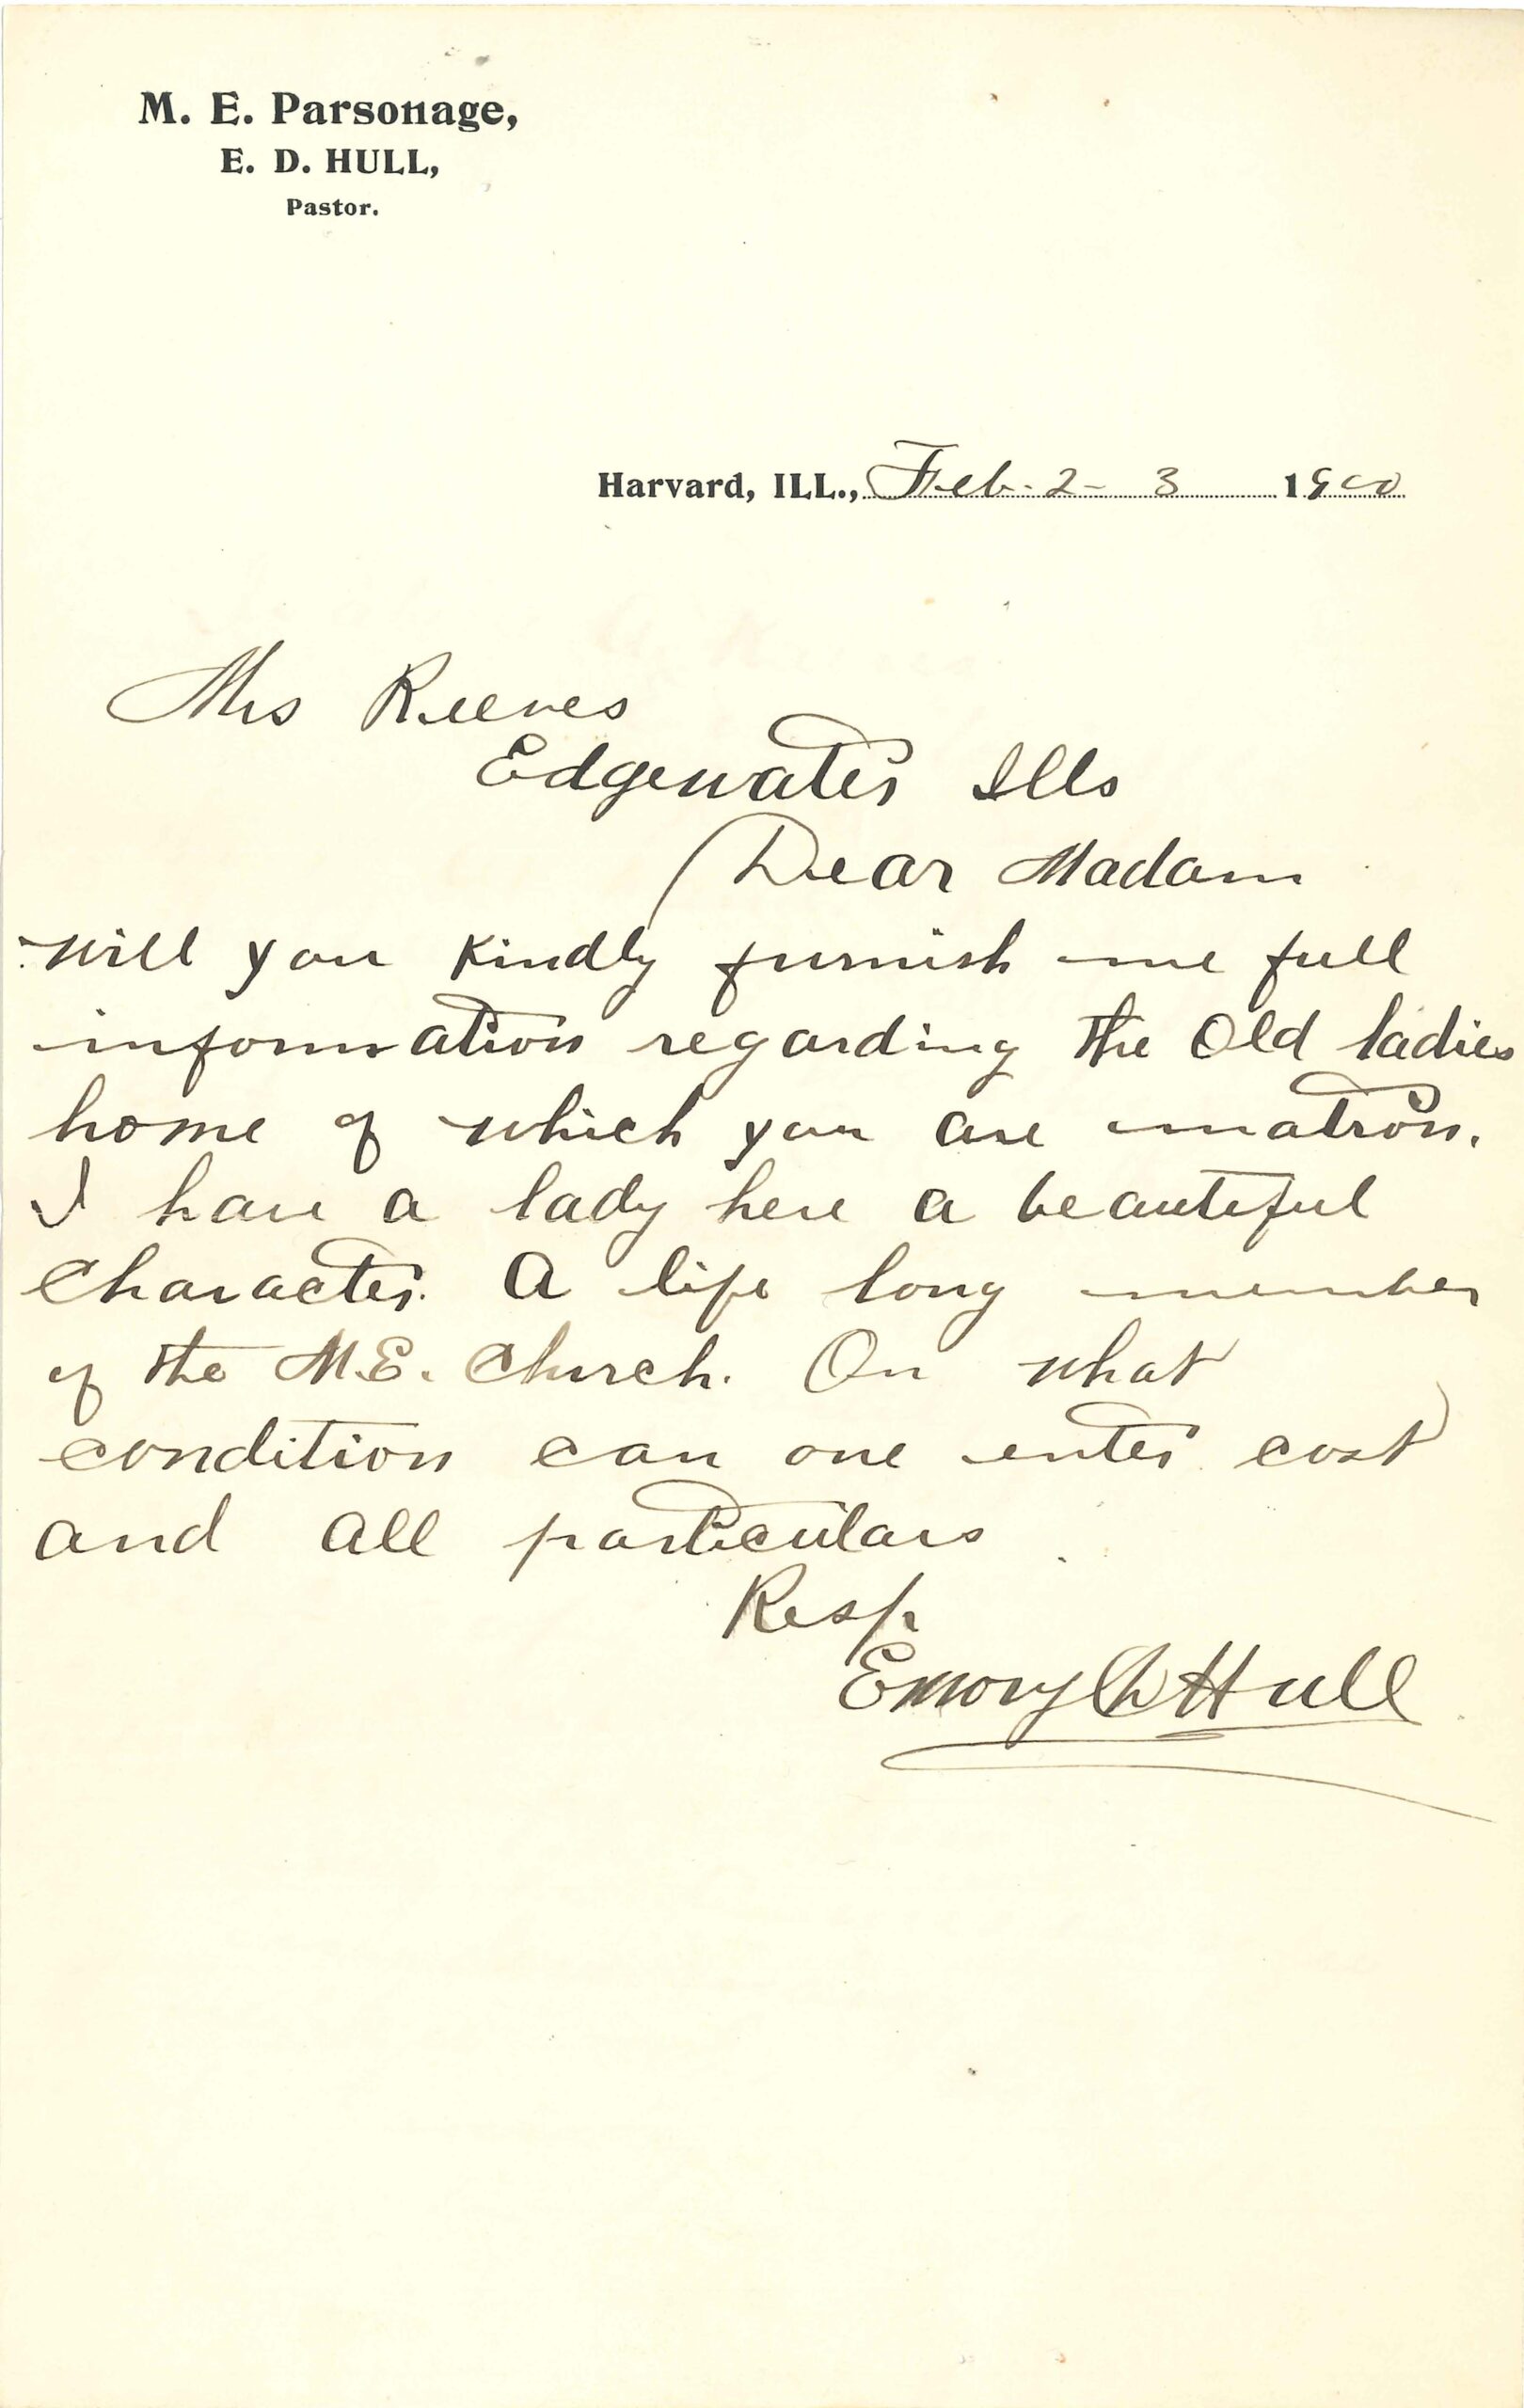 M. E. Parsonage,
E. D. HULL,
Pastor.
Harvard, ILL., Feb. 2- 3 1900
Mrs Reeves
Edgewater Ills
Dear Madam
will you kindly furnish me full
information regarding the Old ladies
home of which you are matron.
I have a lady here a beautiful
Character. A life long member
of the M.E. Church. On what
condition can one enter cost
and all particulars
Resp.
Emory D Hull